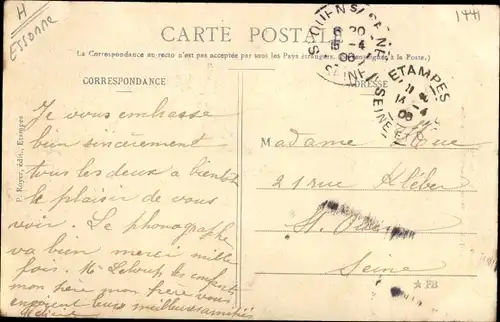 H
Essonne
1441
CARTE POSTALE
(La Correspondance au recto n'est pas acceptée par tous les Pays étrangers. à la Poste.)
CORRESPONDANCE
ADRESSE
ST OUEN S/ SEINE
15 -4
06
SEINE
ETAMPES
14 -4
06
SEINE
P. Royer, édit., Etampes
Je vous embrasse
bien sincèrement
tous les deux a bientôt
le plaisir de vous
voir. Le phonographe
va bien merci mille
fois. Mr Leloup les enfants
mon père mon frère vous
envoient leurs meilleures amitiés
Madame
21 rue Kléber
St Ouen
Seine
PB